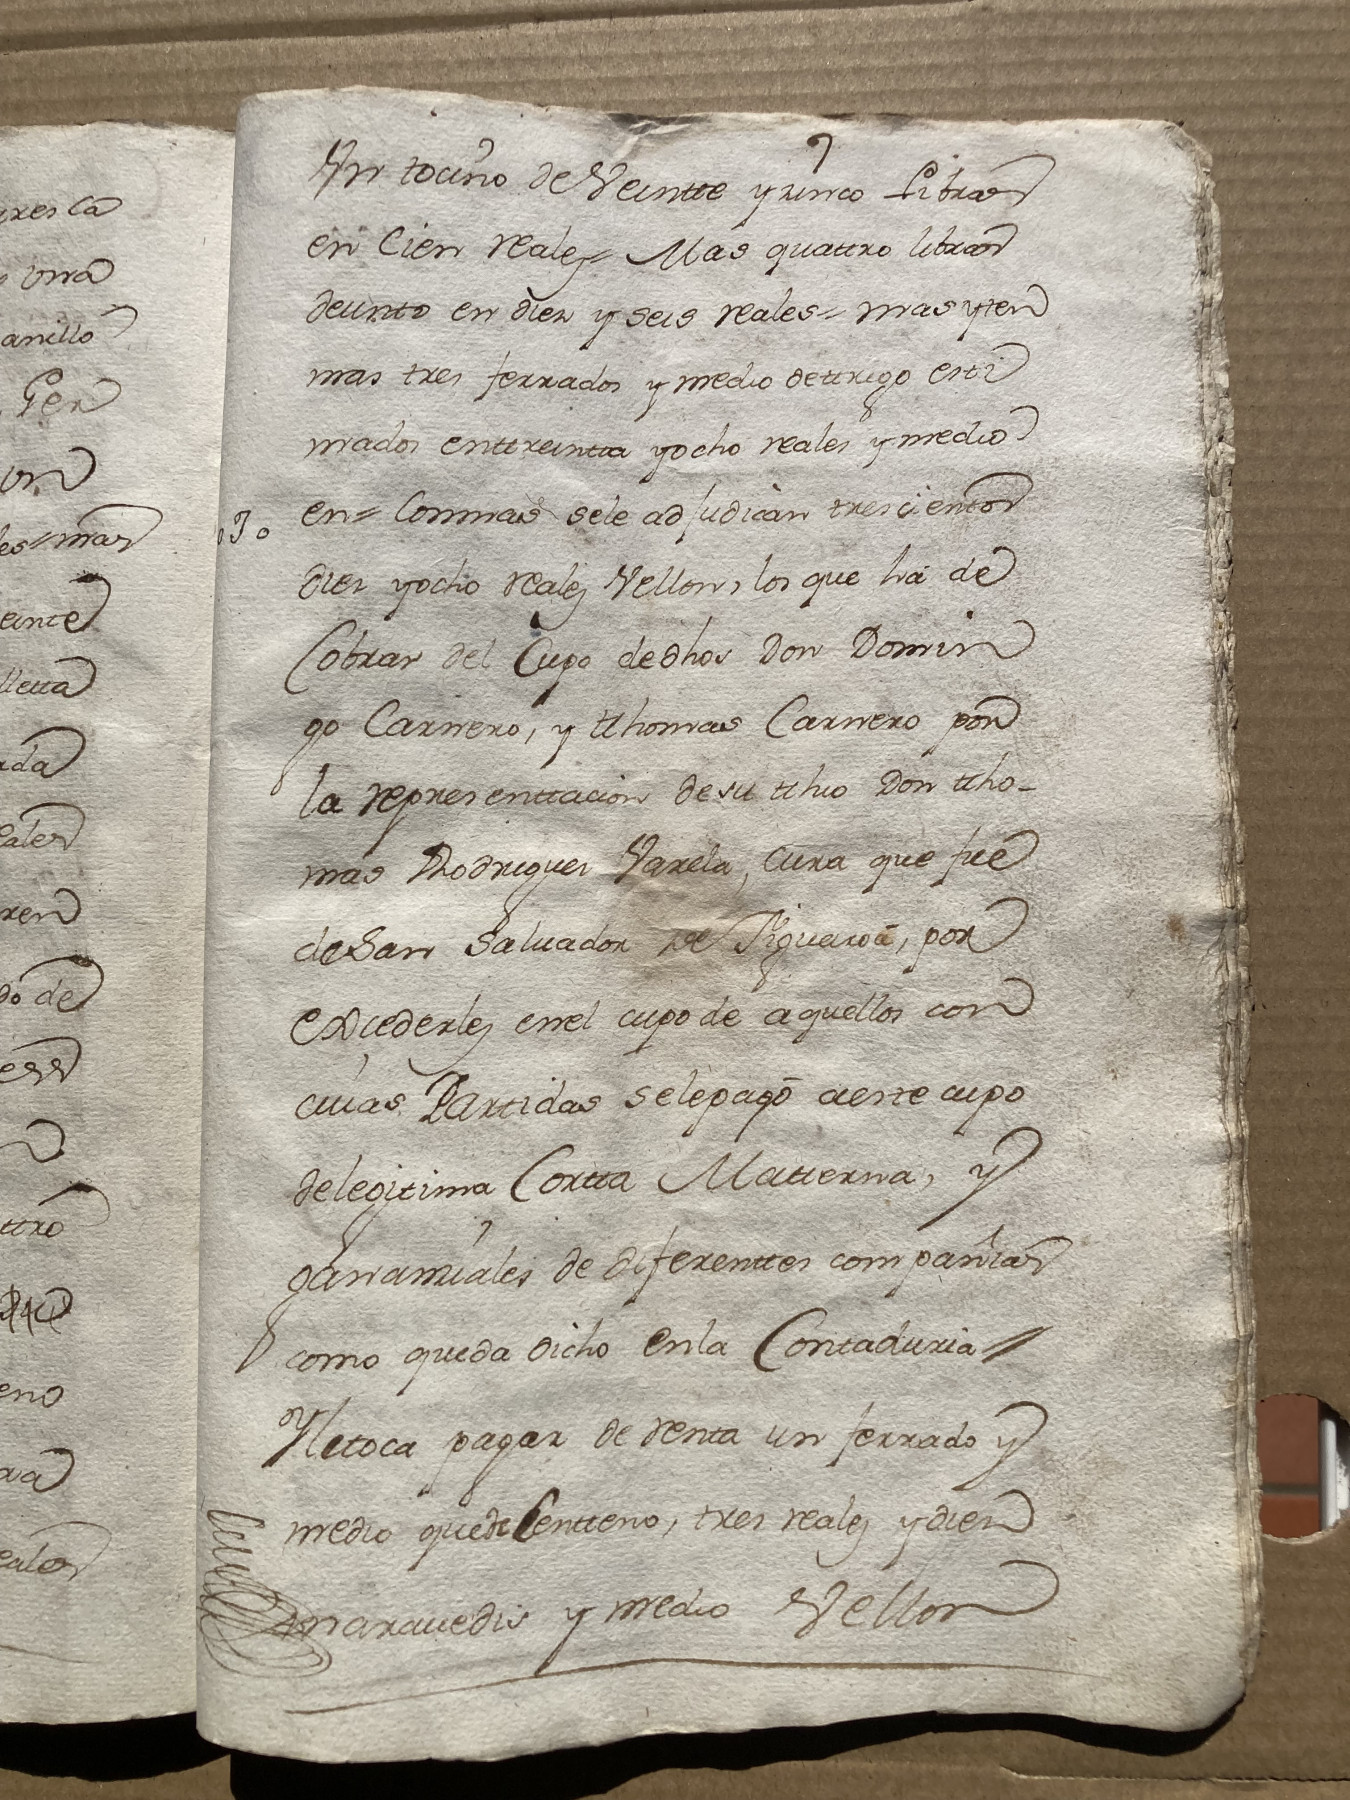 ares ca
una
anillo
Per
un
les= mas
einte
lletta
ada
eales
ren
do de
ess
ttro
eno
ra
eales
Un tocino de Veintte y cinco Libras
en Cien reales= Mas quattro libras
deunto en diez y seis reales= mas yten
mas tres ferrados y medio dettrigo esti
mados enttreintta yocho reales y medio
en= Conmas sele adjudican trescientos
diez yocho reales Vellon, los que há de
Cobrar del Cupo dedhos Don Domin
go Carnero, y tthomas Carnero por
la representtacion desu tthio Don ttho-
mas Rodriguez Varela, Cura que fué
deSan Salvador de Pigueiroá, por
excederles enel cupo de aquellos con
cuias Partidas selepagó aeste cupo
delegitima Cortta Matterna, y
gananciales de diferenttes compañias
como queda dicho enla Contaduria=
Yletoca pagar de renta un ferrado y
medio quede Centteno, tres reales y diez
maravedis y medio Vellon